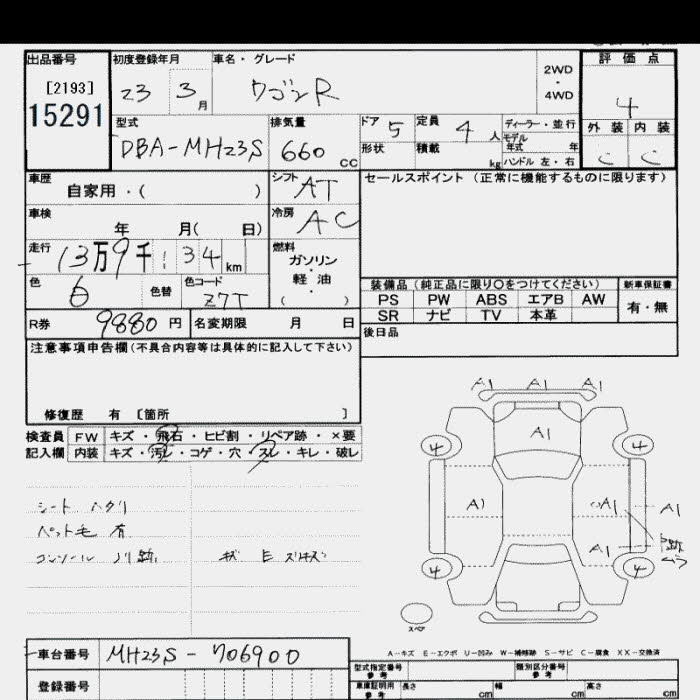 出品番号 初度登録年月 車名・グレード 評価点
[2193] 23 3月 ワゴンR 2WD・4WD 4
15291
型式 排気量 ドア 5 定員 4人 ディーラー・並行 外装 内装
DBA-MH23S 660cc 形状 積載 kg モデル年式 年 C C
ハンドル 左・右
車歴 シフト AT セールスポイント (正常に機能するものに限ります)
自家用・( )
車検 冷房 AC
年 月( 日)
走行 燃料
13万9千134km ガソリン・軽油・( )
色 色替 色コード 装備品 (純正品に限り○をつけてください) 新車保証書
Z7T PS PW ABS エアB AW 有・無
SR ナビ TV 本革
R券 9880円 名変期限 月 日 後日品
注意事項申告欄(不具合内容等は具体的に記入して下さい)
修復歴 有 [箇所 ]
検査員 FW キズ・飛石・ヒビ割・リペア跡・×要
記入欄 内装 キズ・汚レ・コゲ・穴・スレ・キレ・破レ
A1 A1 A1
A1
4 4
A1 A1 A1
A1 ムラ
4 4
スペア
シート ハクリ
ペット毛 有
コンソール ノリ跡
A-キズ E-エクボ U-凹み W-補修跡 S-サビ C-腐食 XX-交換済
車台番号 MH23S-706900
型式指定番号 参考 類別区分番号 参考
登録番号 車庫証明用 参考 長さ cm 幅 cm 高さ cm